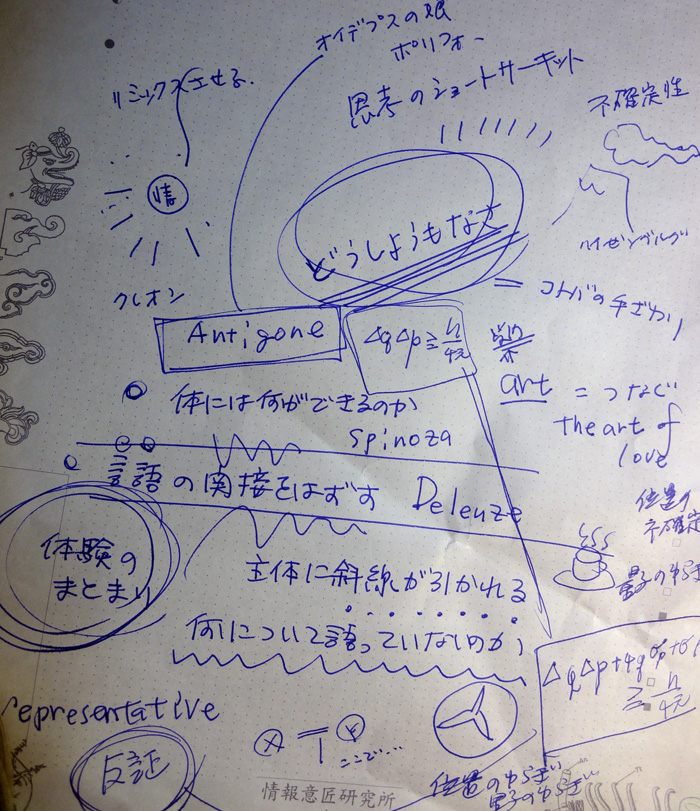 オイデプスの眼
ポリフォー
リミックスさせる.
思考のショートサーキット
不確定性
情
どうしようもなさ
ハイゼンブルグ
クレオン
= コトバの手ざわり
Antigone
ΔqΔp≧h/4π
art = つなぐ
the art of
love
体には何ができるのか
Spinoza
言語の関接をはずす Deleuze
位置の
不確定
体験の
まとまり
主体に斜線が引かれる
量子のゆらぎ
何について語っていないのか
representative
ここで...
反証
位置のゆらぎ
量子のゆらぎ
情報意匠研究所